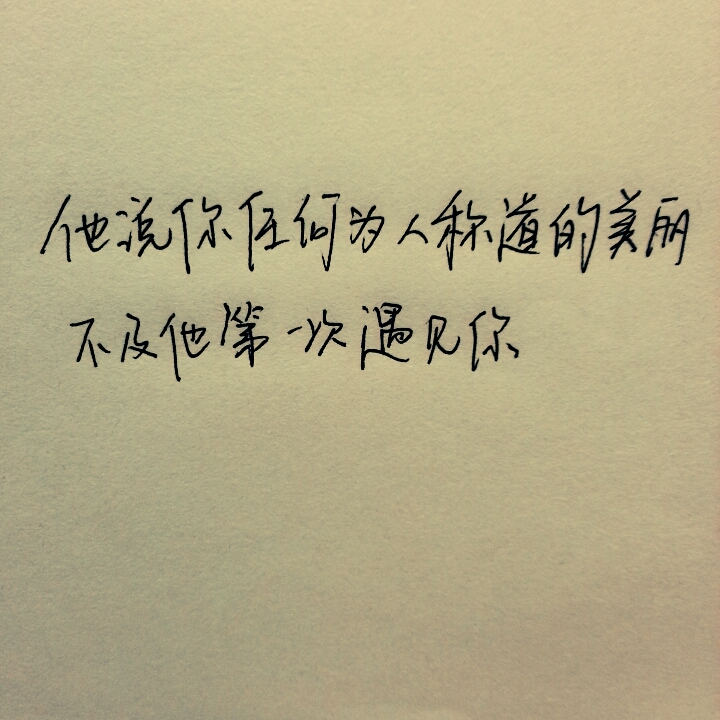 他说你任何为人称道的美丽
不及他第一次遇见你